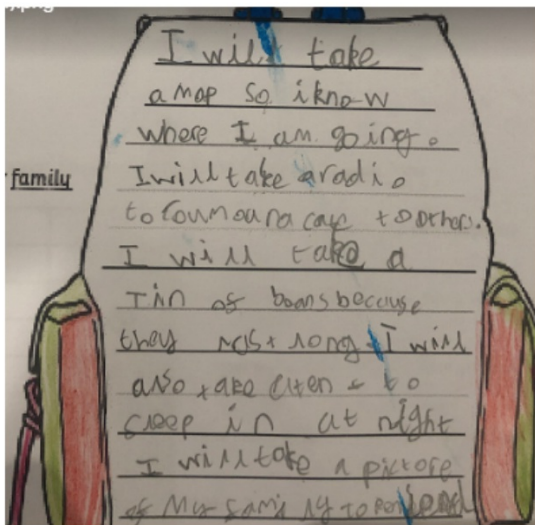 I will take
a map so i know
where I am going.
family
I will take a radio
to coumounacayt to others.
I will take a
Tin of beans because
they last long I will
also take a ten t to
sleep in at night
I will take a pictore
of My family to